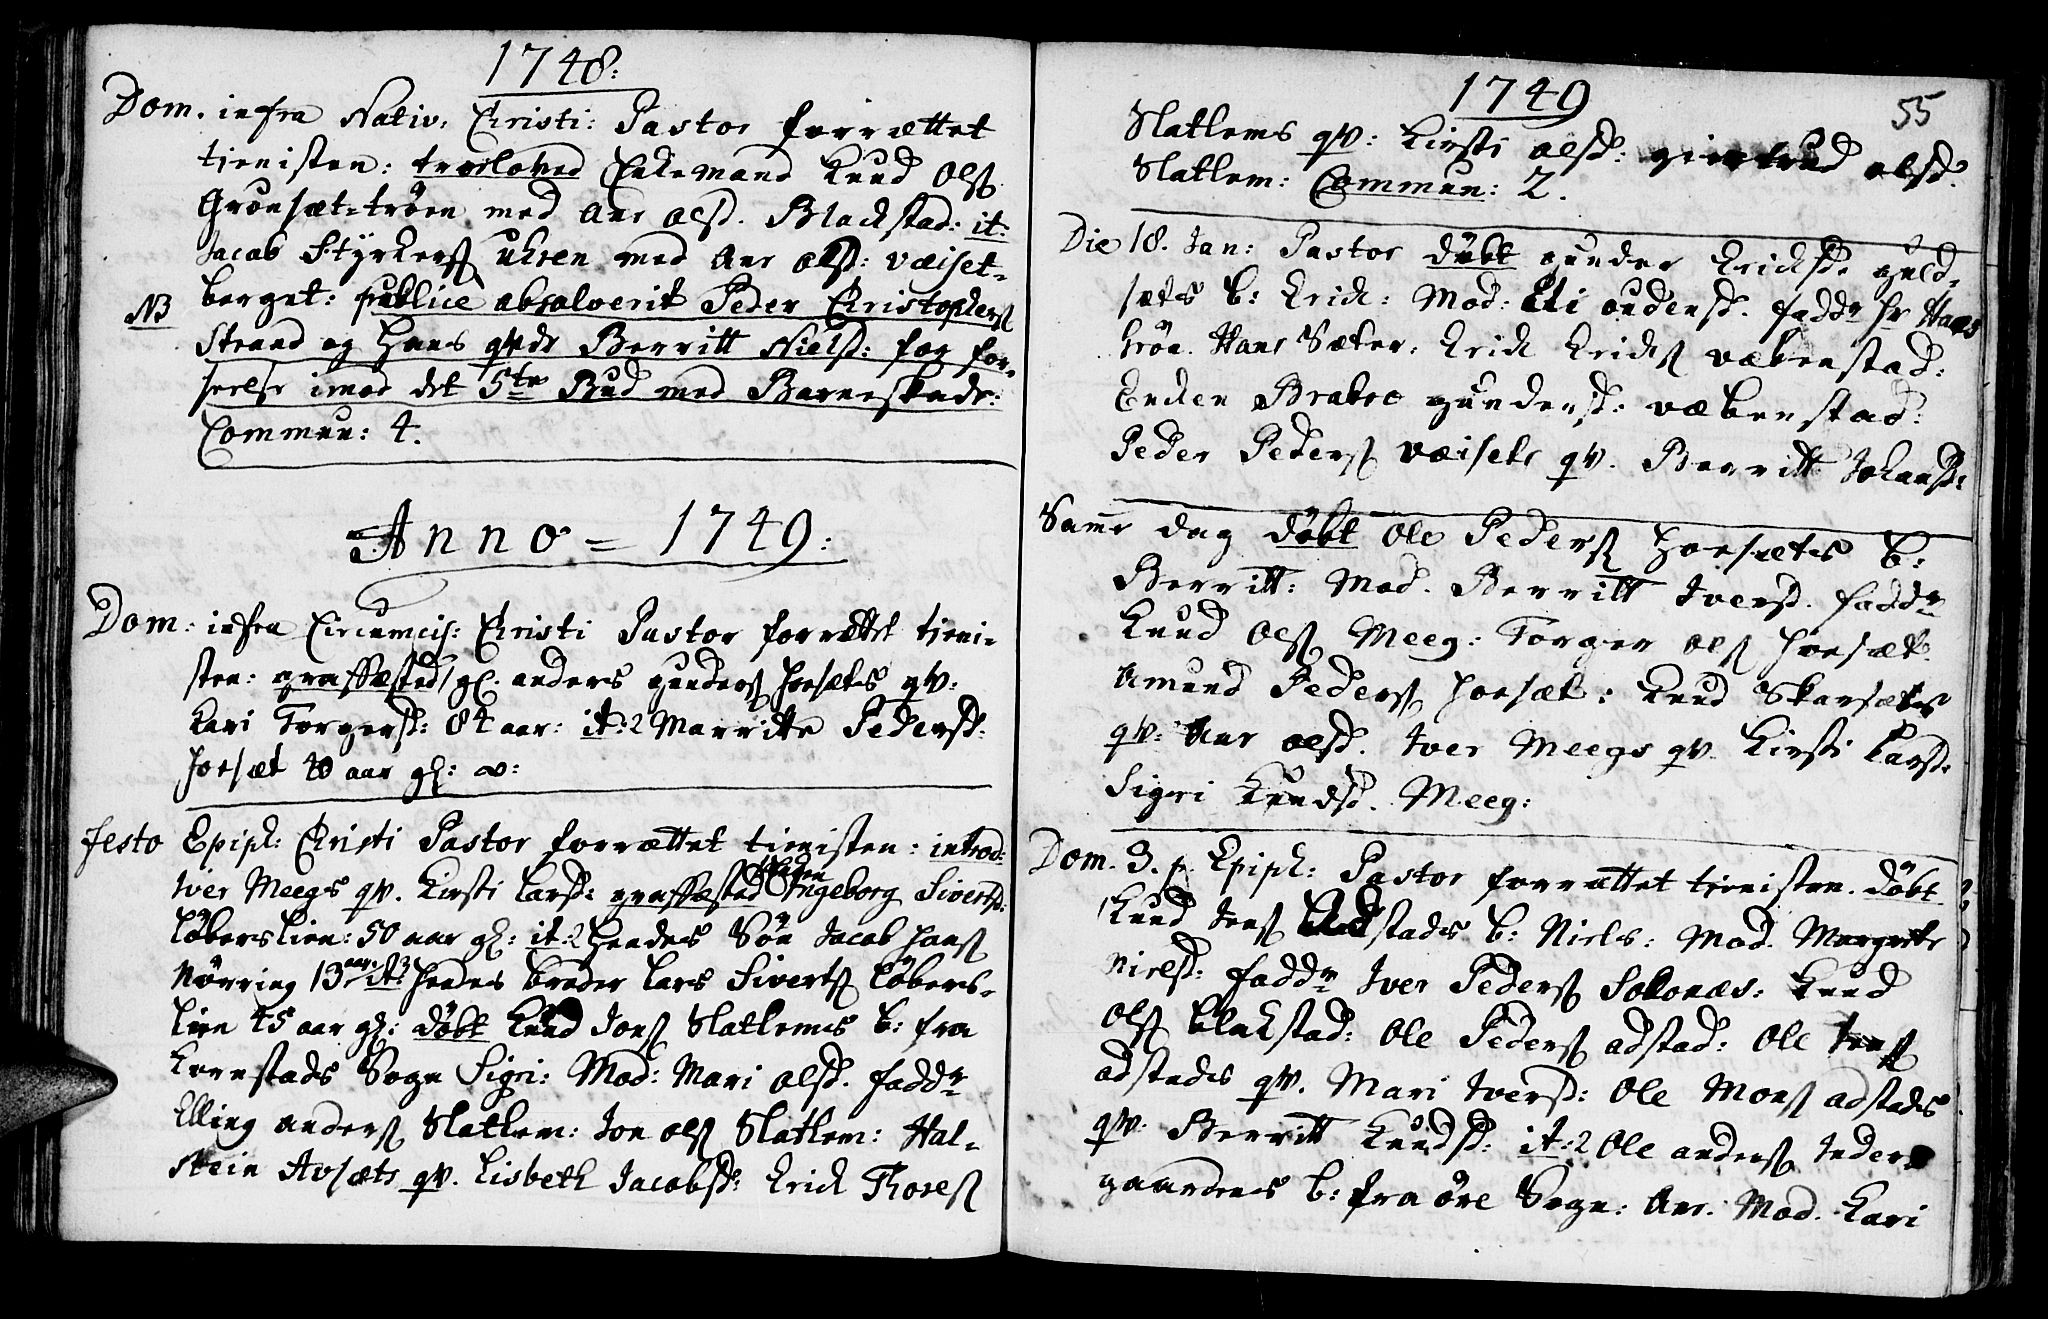 1748:
Dom. infra Nativ. Christi: Pastor forrættet
tienisten: troeloved Enkemand Knud Ols
Grönset-tröen med Ane olsd. Blackstad: it:
Jacob Styrkers uhren med Ane olsd: Væiset-
NB berget: publice absolverit Peder Christophers
Strand og Hans qvde Berritt Nielsd: for for-
seelse imod det 5te Bud med Barneskade:
Commun: 4.
Anno = 1749:
Dom: infra Circumcis: Christi Pastor forrettet tieni-
sten: graffæsted gl. anders gunders Hoesæts qv:
Kari Torgersd: 84 aar: it: 2 Marrite Pedersd:
Hoesæt 10 aar gl:
festo Epiph: Christi Pastor forrættet tienisten: introd:
Iver Meegs qv. Kirsti Larsd: graffæsted Ingeborg Sivertsd:
Löberslien: 50 aar gl: it: 2 hendes Sön Jacob Hans
Nörring 13 aar. it: 3 hendes broder Lars Siverts Löbers-
lien 45 aar gl: döbt Knud Jons Slatlems b: fra
Kornstads Sogn Sigri: Mod: Mari olsd. fadde
Elling anders Slatlem: Jon ols Slatlem: Hal-
stein Avsæts qv. Lisbeth Jacobsd: Erich Thores
1749
55
Slatlems qv: Kirsti olsd: giertrud olsd.
Slatlem: Commun: 2.
Die 18. Jan: Pastor döbt gunder Erichs guld-
sets b: Erich: Mod: Eli gundersd. fadde hr Hans
tröe. Hans Sæter: Erich Erichs væbenstad:
Enken Brabro gundersd: væbenstad:
Peder Peders væisets qv. Berritt Johansd:
Same dag döbt Ole Peders Hoesæts b:
Berritt: Mod. Berritt Iversd. fadde
Knud Ols Meeg: Torger ols Hoesæt.
Amund Peders Hoesæt: Knud Skarsæts
qv: Ane olsd. Iver Meegs qv. Kirsti Larsd:
Sigri Knudsd. Meeg:
Dom. 3. p. Epiph: Pastor forrættet tienisten. döbt
Knud Jens stads b: Niels: Mod. Margrete
Nielsd: fadde Iver Peders Solonæs: Knud
Ols blakstad: Ole Peders adstad: Ole Jens
adstads qv. Mari Iversd: Ole Mons adstads
qv. Berritt Knudsd: it: 2 Ole anders Inder
gaardens b: fra öre Sogn: Ane. Mod. Kari